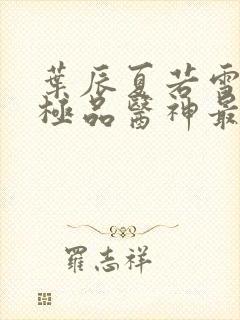 葉辰夏若雪
極品醫神最
羅志祥